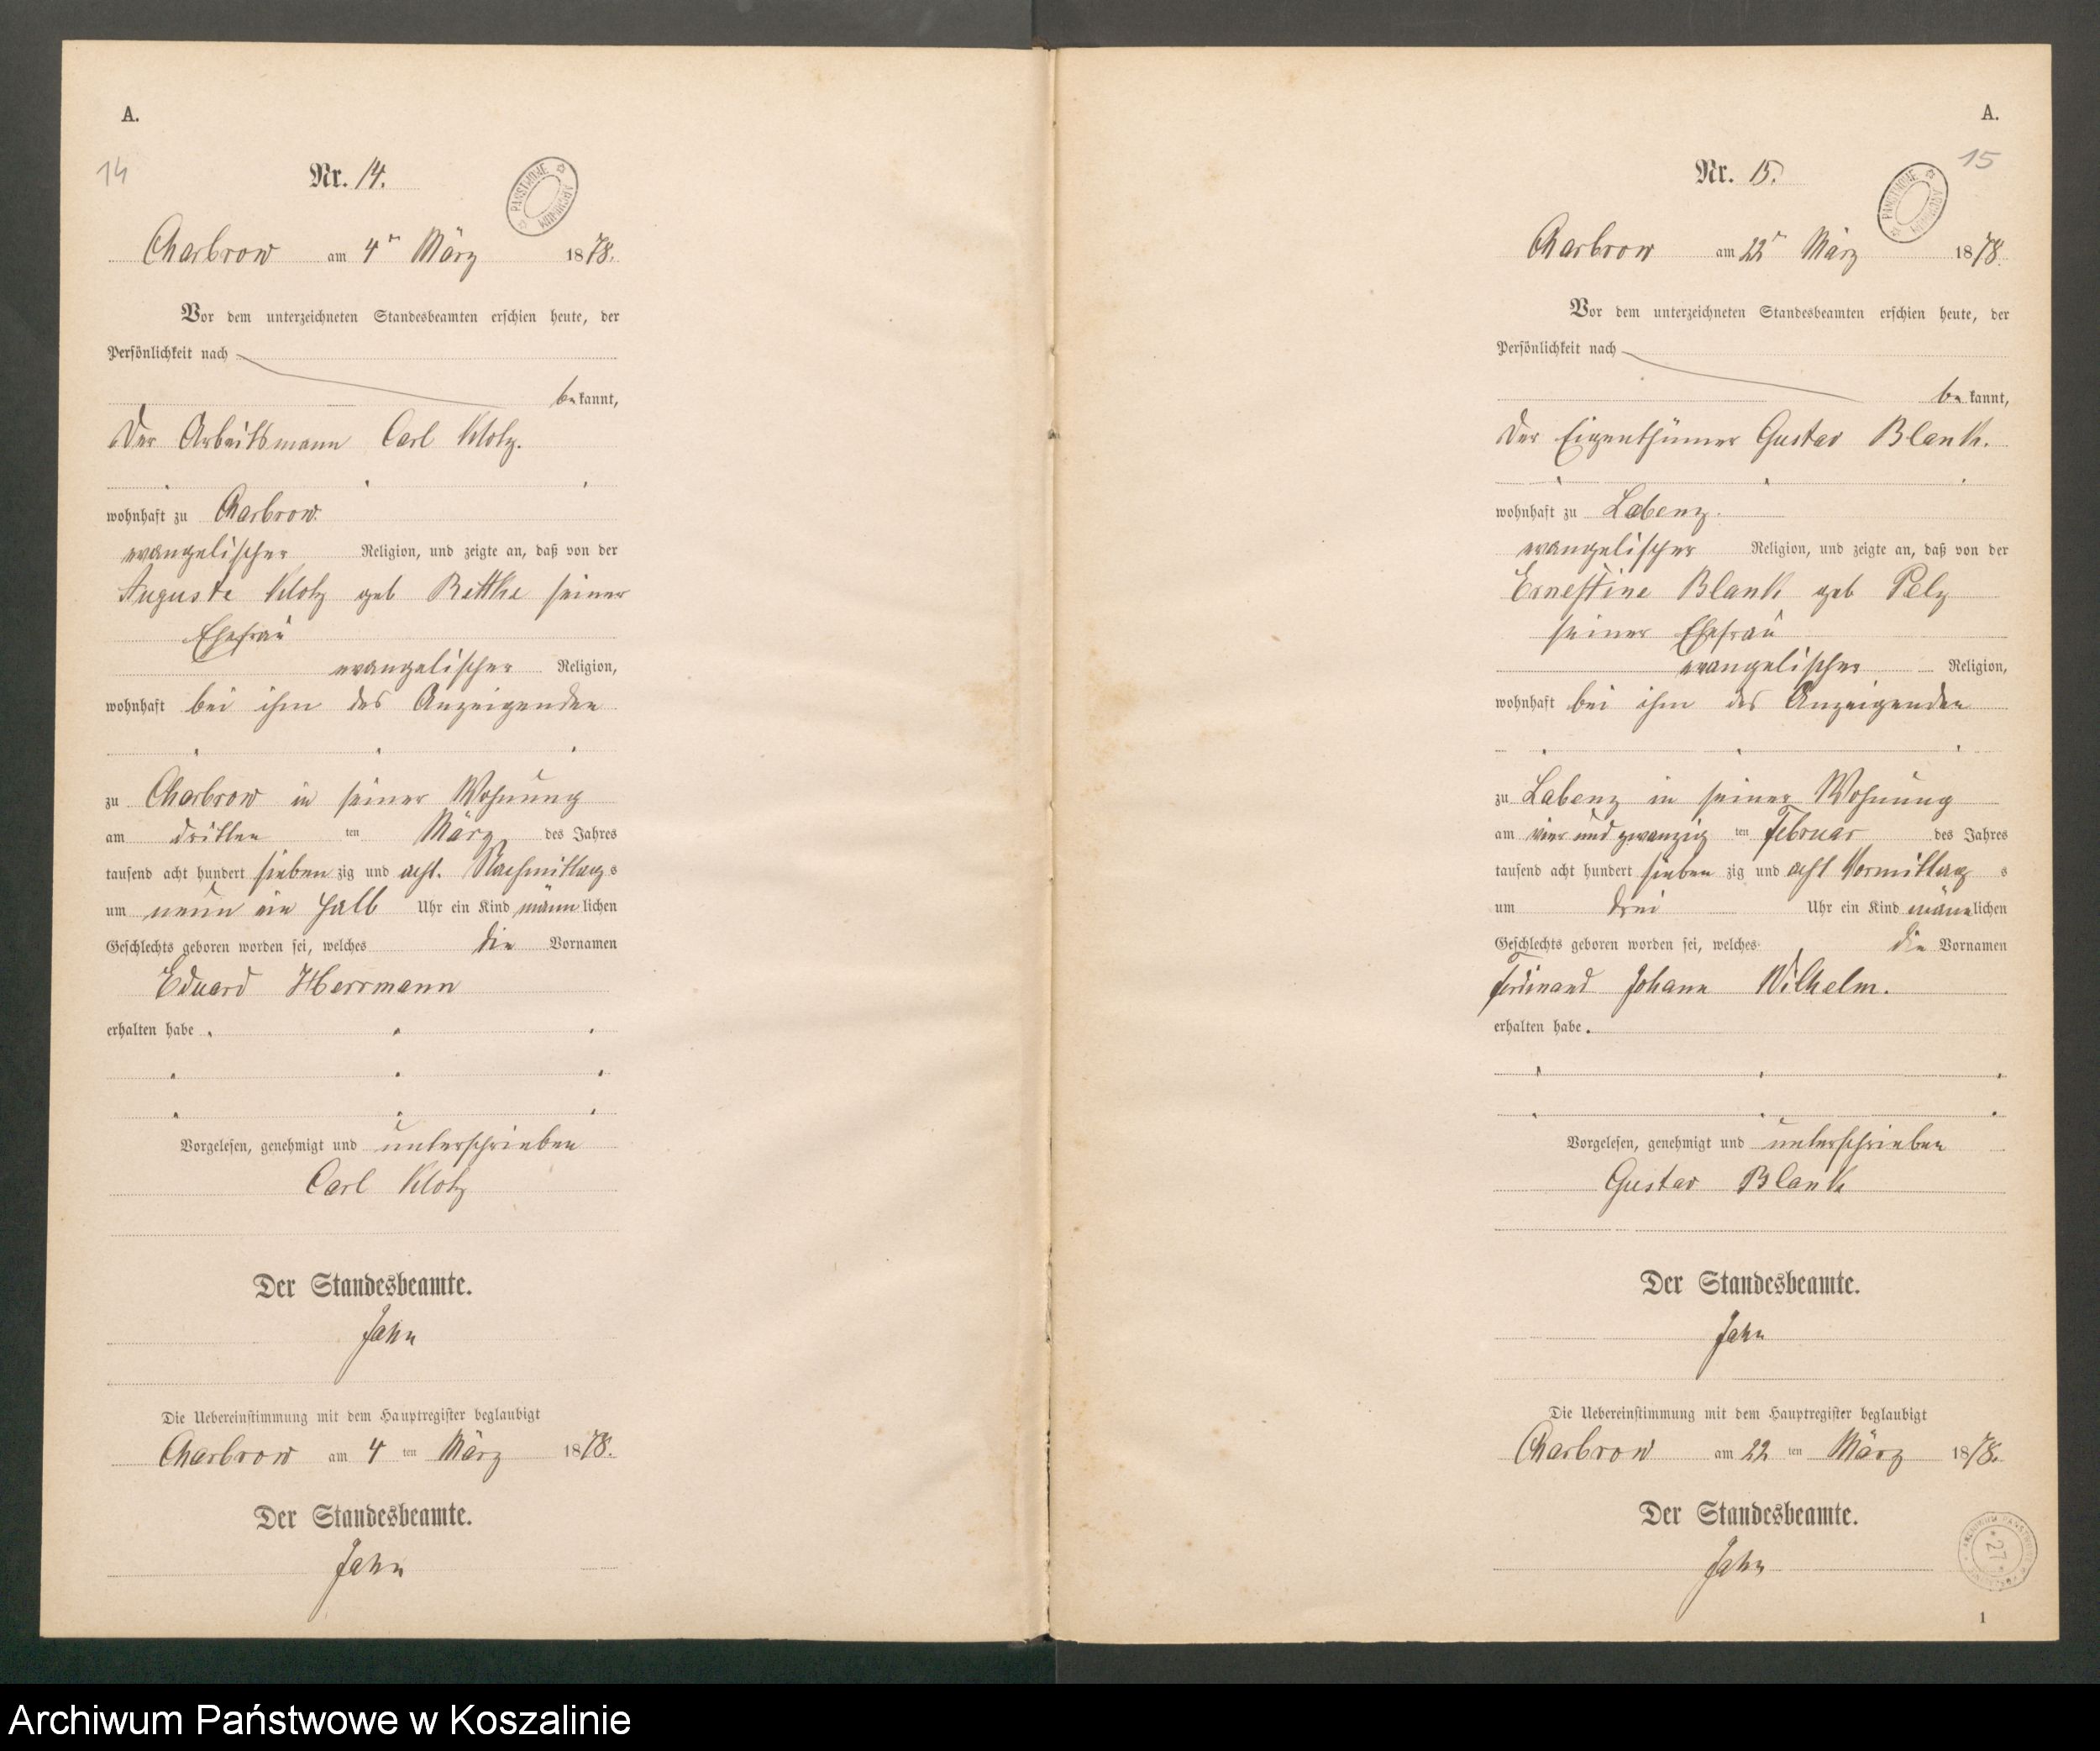 A.
14
Nr. 14.
PAŃSTWOWE ARCHIWUM
Charbrow am 4ten März 1878.
Vor dem unterzeichneten Standesbeamten erschien heute, der
Persönlichkeit nach
bekannt,
Der Arbeitsmann Carl Klotz.
wohnhaft zu Charbrow.
evangelischer Religion, und zeigte an, daß von der
Auguste Klotz geb Rettke seiner
Ehefrau
evangelischer Religion,
wohnhaft bei ihm des Anzeigenden
zu Charbrow in seiner Wohnung
am dritten ten März des Jahres
tausend acht hundert siebenzig und acht. Nachmittags
um neun ein halb Uhr ein Kind männlichen
Geschlechts geboren worden sei, welches die Vornamen
Eduard Herrmann
erhalten habe.
Vorgelesen, genehmigt und unterschrieben
Carl Klotz
Der Standesbeamte.
Jahn
Die Uebereinstimmung mit dem Hauptregister beglaubigt
Charbrow am 4ten März 1878.
Der Standesbeamte.
Jahn
A.
15
Nr. 15.
PAŃSTWOWE ARCHIWUM
Charbrow am 22ten März 1878.
Vor dem unterzeichneten Standesbeamten erschien heute, der
Persönlichkeit nach
bekannt,
Der Eigenthümer Gustav Blank.
wohnhaft zu Labenz.
evangelischer Religion, und zeigte an, daß von der
Ernestine Blank geb Pelz
seiner Ehefrau
evangelischer Religion,
wohnhaft bei ihm des Anzeigenden
zu Labenz in seiner Wohnung
am vier und zwanzig ten Februar des Jahres
tausend acht hundert siebenzig und acht Vormittags
um drei Uhr ein Kind männlichen
Geschlechts geboren worden sei, welches die Vornamen
Ferdinand Johann Wilhelm.
erhalten habe.
Vorgelesen, genehmigt und unterschrieben
Gustav Blank
Der Standesbeamte.
Jahn
Die Uebereinstimmung mit dem Hauptregister beglaubigt
Charbrow am 22ten März 1878.
Der Standesbeamte.
Jahn
27
1
Archiwum Państwowe w Koszalinie